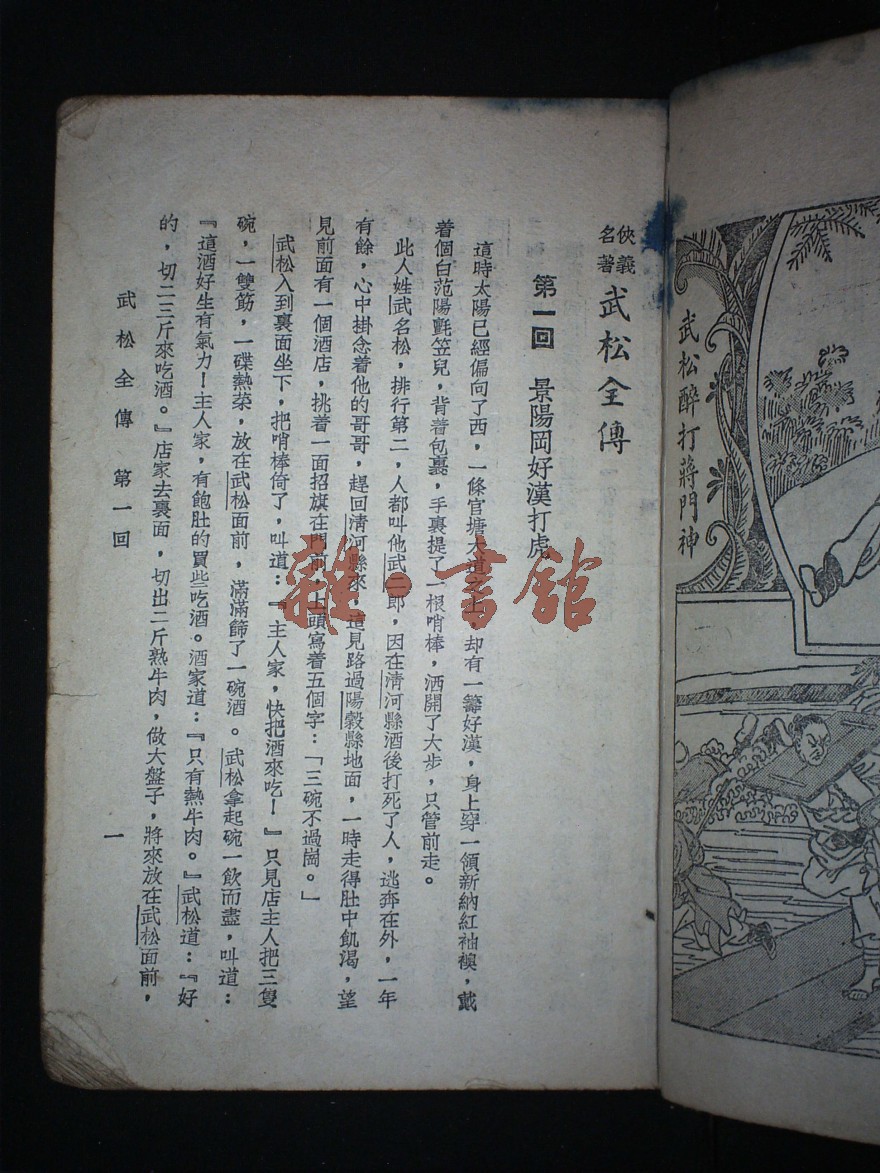 武松醉打蔣門神
俠義
名著
武松全傳
第一回　景陽岡好漢打虎
這時太陽已經偏向了西，一條官塘大道之上，却有一籌好漢，身上穿一領新納紅袖襖，戴
着個白范陽氈笠兒，背着包裹，手裏提了一根哨棒，洒開了大步，只管前走。
此人姓武名松，排行第二，人都叫他武二郎，因在淸河縣酒後打死了人，逃奔在外，一年
有餘，心中掛念着他的哥哥，趕回淸河縣來，這見路過陽穀縣地面，一時走得肚中飢渴，望
見前面有一個酒店，挑着一面招旗在門前，上頭寫着五個字：「三碗不過崗。」
武松入到裏面坐下，把哨棒倚了，叫道：『主人家，快把酒來吃！』只見店主人把三隻
碗，一雙筯，一碟熱菜，放在武松面前，滿滿篩了一碗酒。武松拿起碗一飲而盡，叫道：
『這酒好生有氣力！主人家，有飽肚的買些吃酒。酒家道：『只有熱牛肉。』武松道：『好
的，切二三斤來吃酒。』店家去裏面，切出二斤熟牛肉，做大盤子，將來放在武松面前，
武松全傳　第一回
一
雜·書館